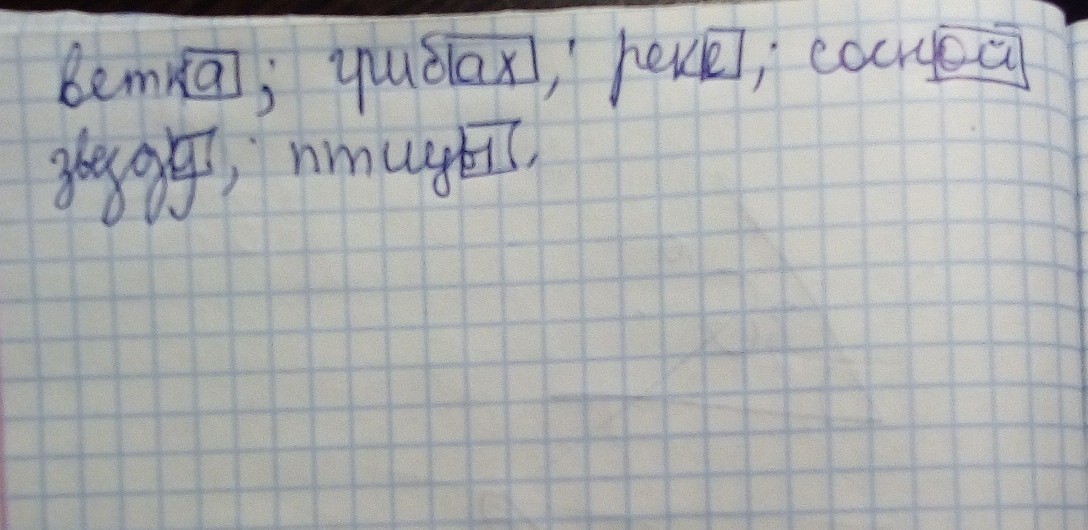 ветка; грибах; реке; сосной
звезду; птицы.